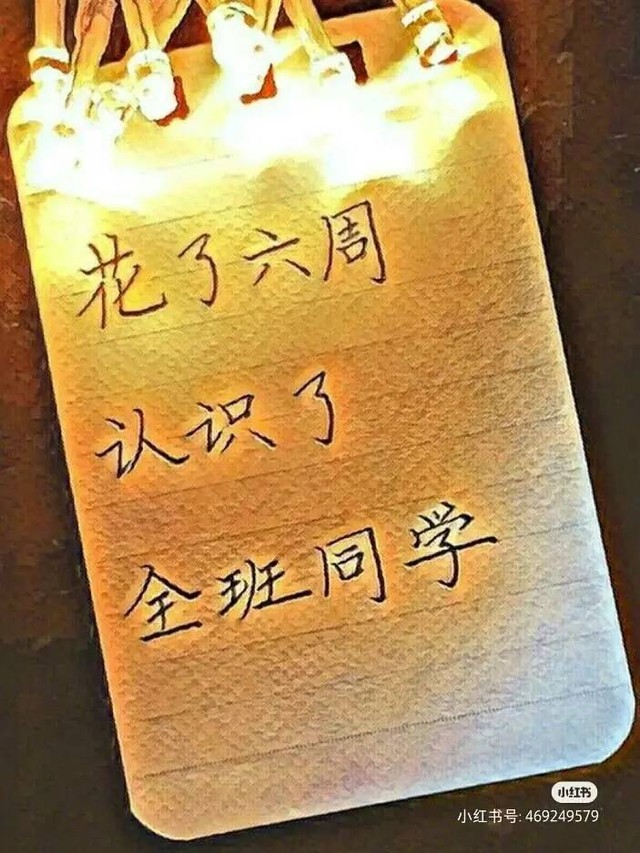 花了六周
认识了
全班同学
小红书
小红书号: 469249579